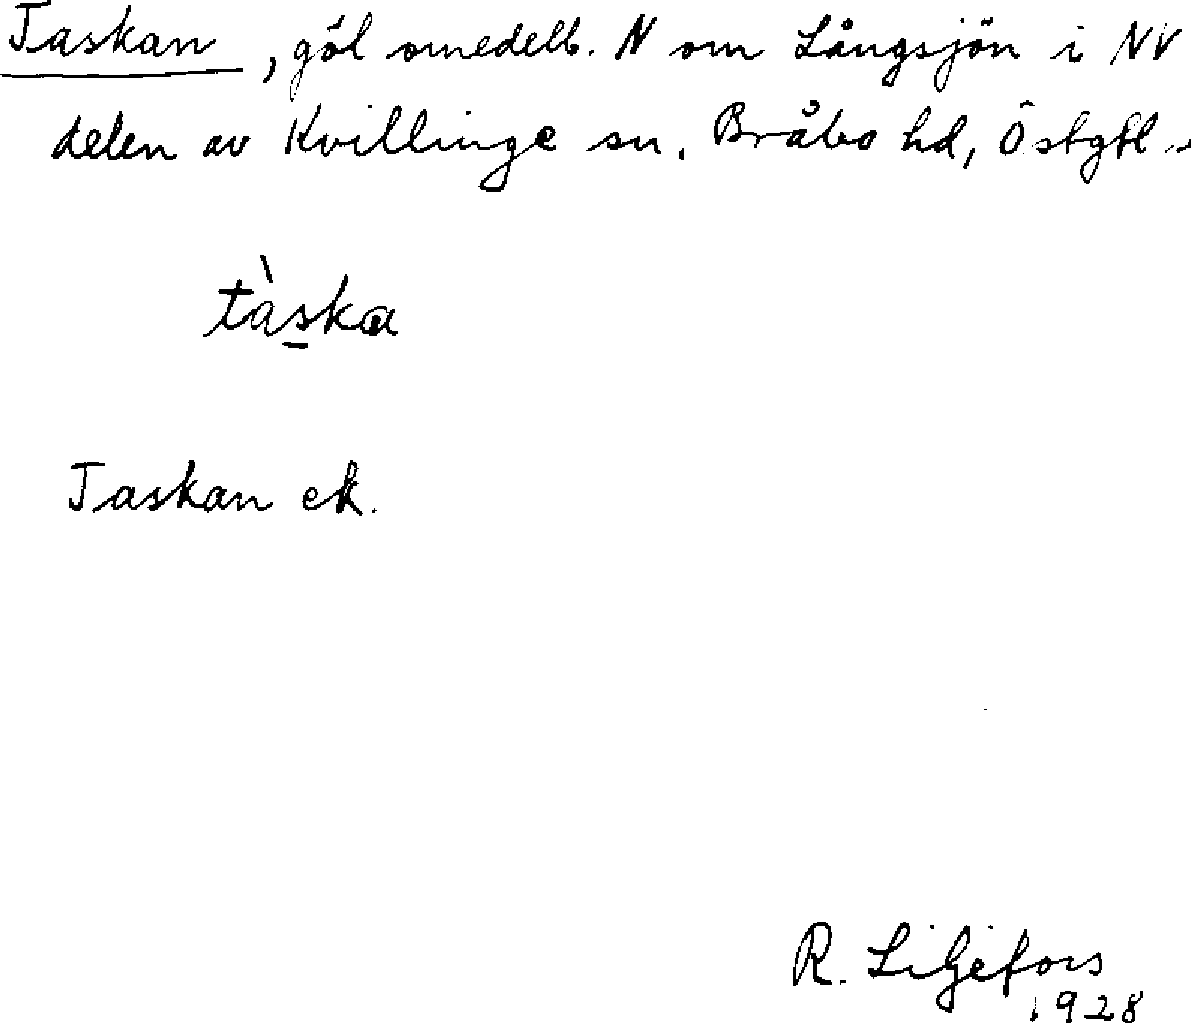 Taskan, göl omedelb. N om Långsjön i NV
delen av Kvillinge sn. Bråbo hd, Östgtl.
tàska
Taskan ek.
R. Liljefors
1928